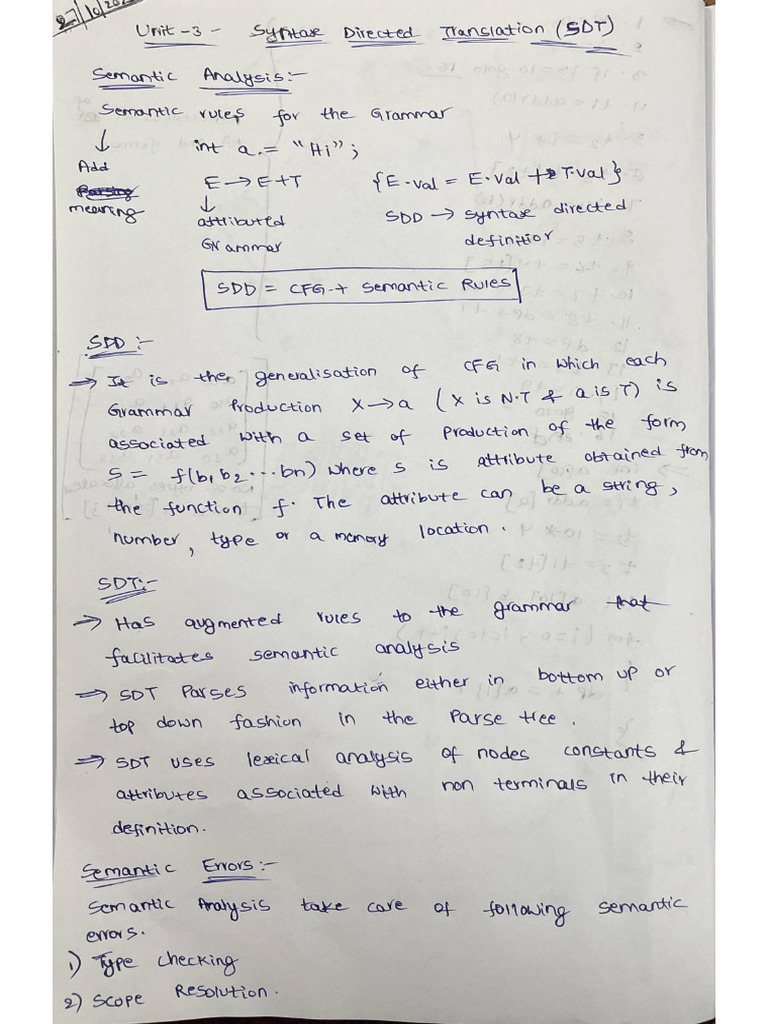 27/10/20
Unit - 3 - Syntax Directed Translation (SDT)
Semantic Analysis:-
Semantic rules for the Grammar
↓ int a = "Hi";
Add
meaning
E → E+T {E.val = E.val + T.val}
↓
attributed
Grammar
SDD → syntax directed
definition
SDD = CFG + Semantic Rules
SDD :-
→ It is the generalisation of CFG in which each
Grammar Production X → a (X is N.T & a is T) is
associated with a set of production of the form
S = f(b1 b2 ... bn) where s is attribute obtained from
the function f. The attribute can be a string,
number, type or a memory location.
SDT:-
→ Has augmented rules to the grammar that
facilitates semantic analysis
→ SDT Parses information either in bottom up or
top down fashion in the Parse tree.
→ SDT uses lexical analysis of nodes constants &
attributes associated with non terminals in their
definition.
Semantic Errors:-
Semantic Analysis take care of following semantic
errors.
1) Type checking
2) Scope Resolution.